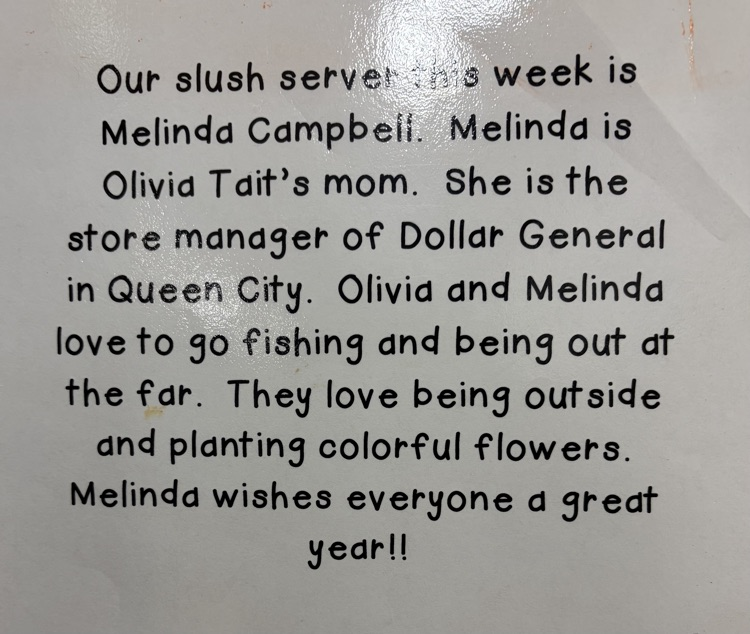 Our slush server this week is
Melinda Campbell. Melinda is
Olivia Tait's mom. She is the
store manager of Dollar General
in Queen City. Olivia and Melinda
love to go fishing and being out at
the far. They love being outside
and planting colorful flowers.
Melinda wishes everyone a great
year!!